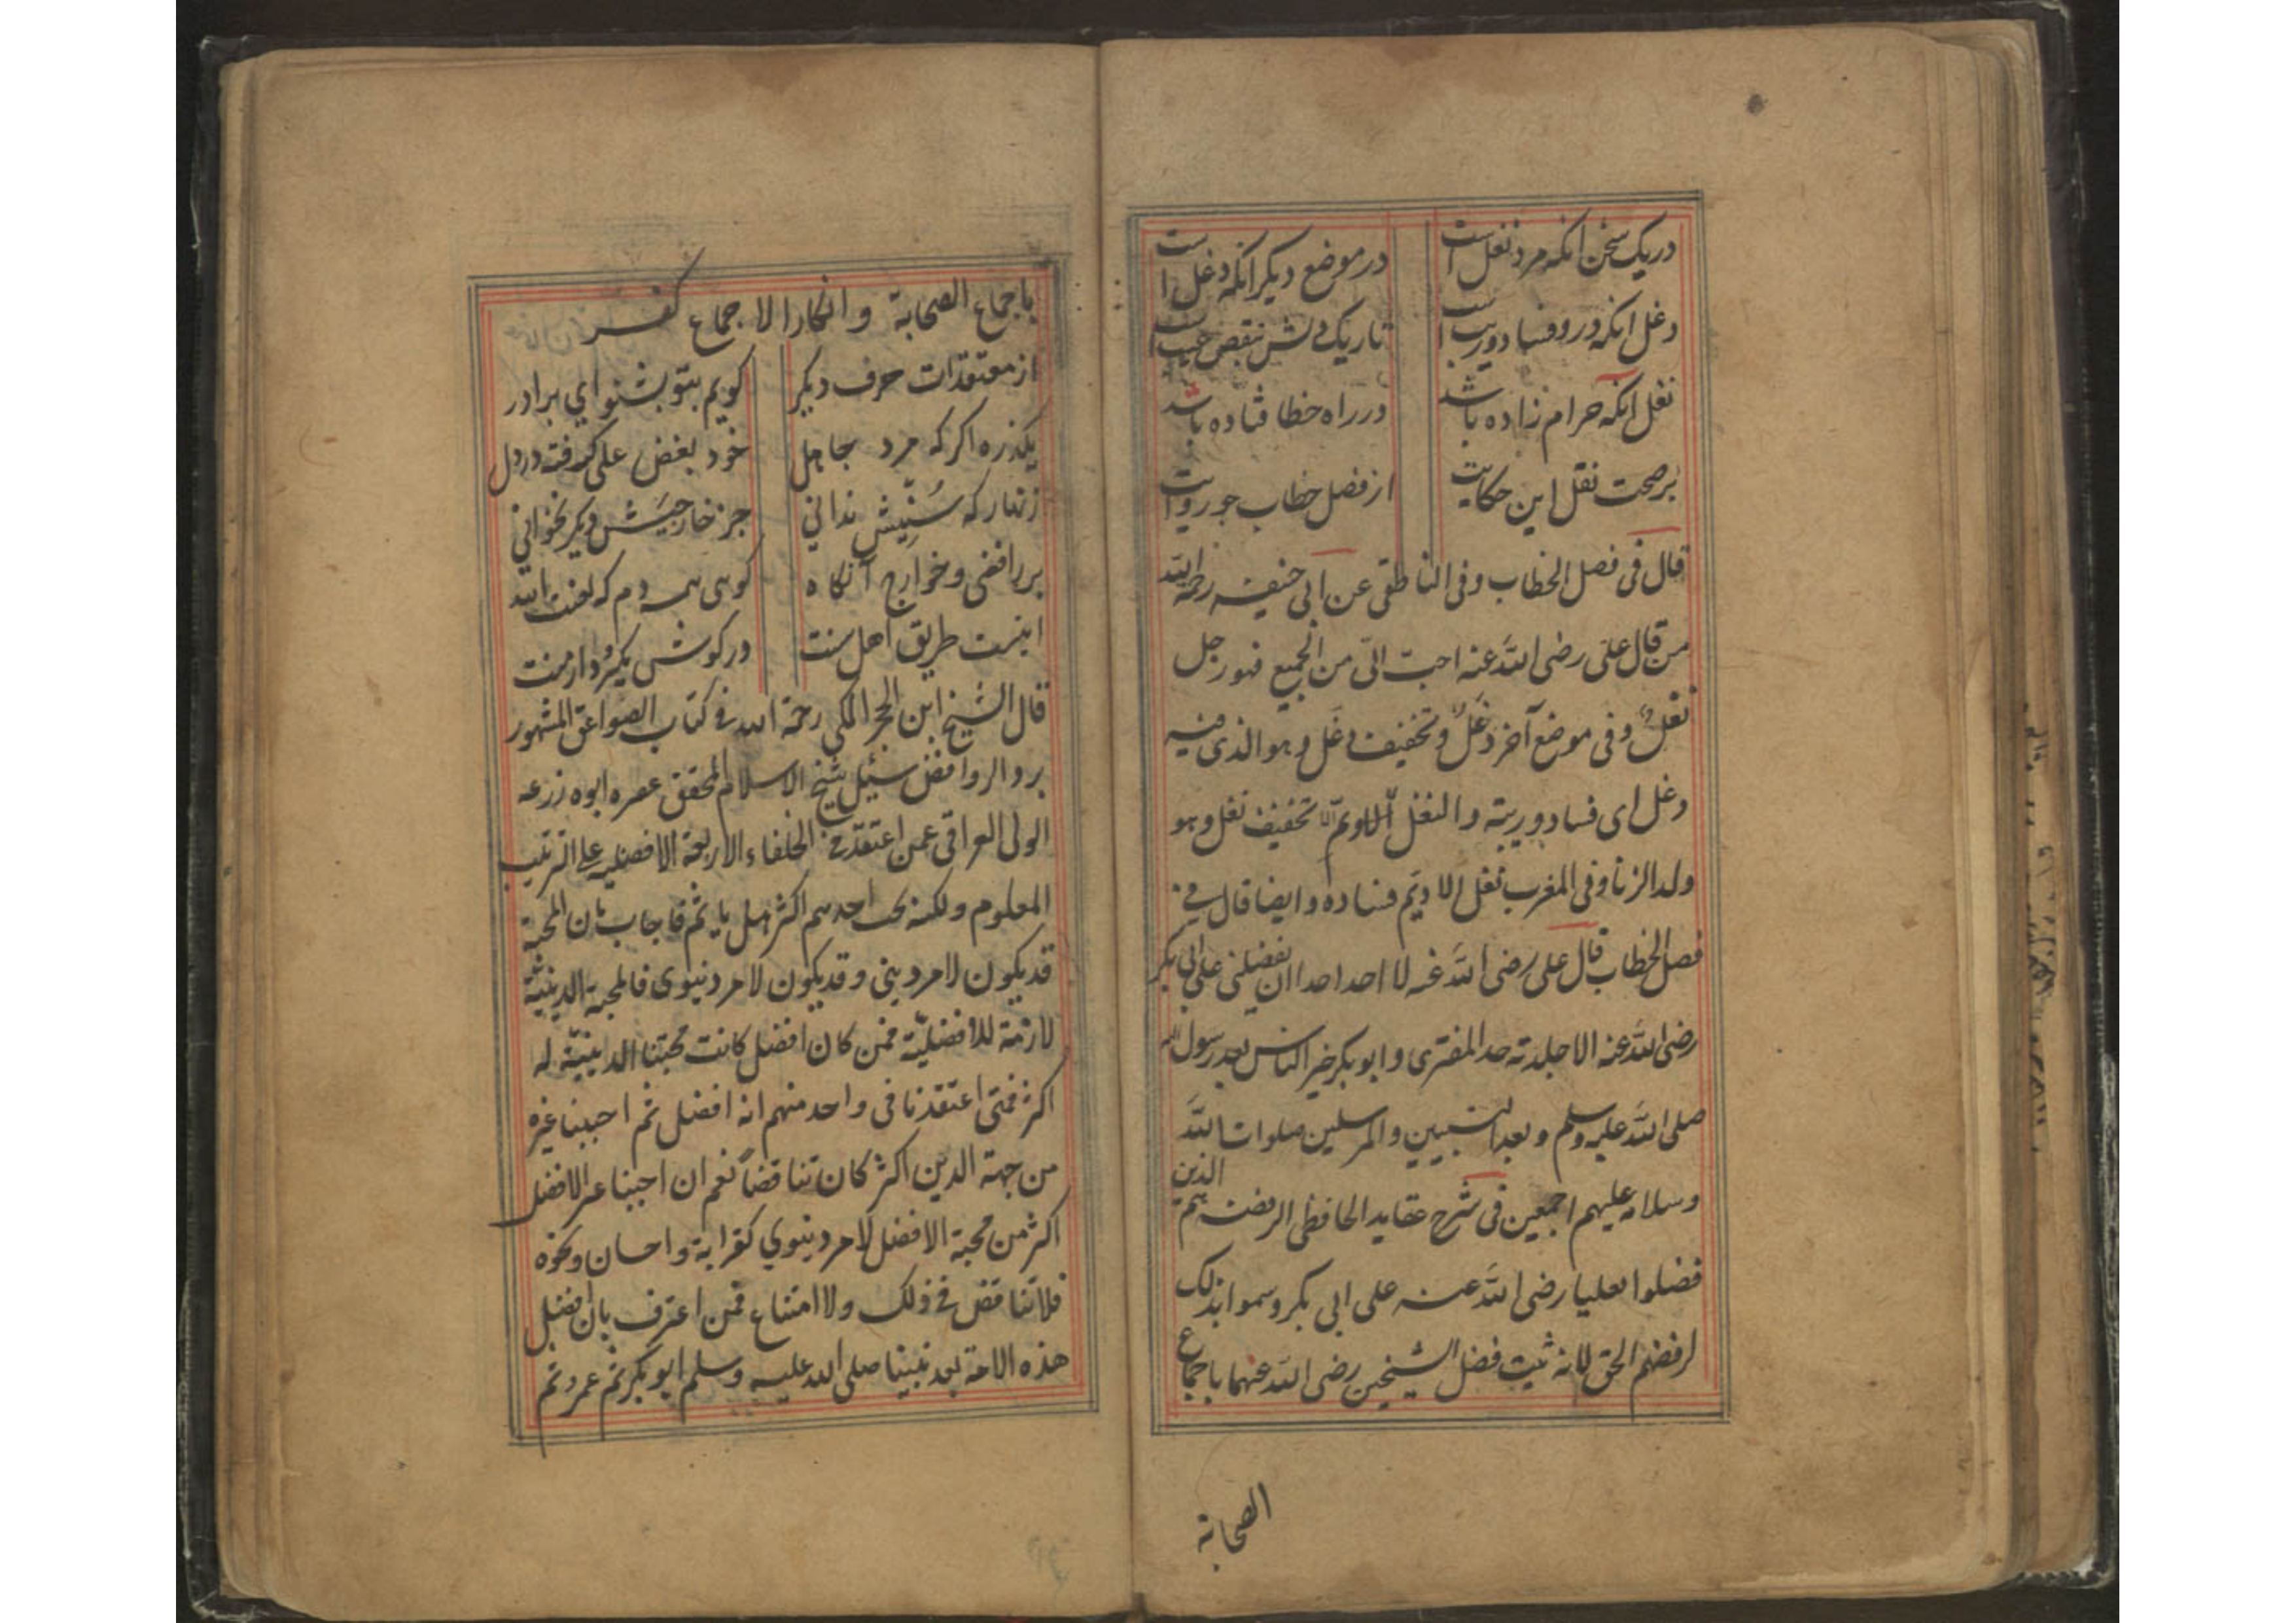 در یک سخن آنکه مرد نغل است در موضع دیکر آنکه دغل است
دغل آنکه درو فساد و ریب است تاریک دلش بنقص عیب است
نغل آنکه حرام زاده باشد در راه خطا فتاده باشد
بر صحت نقل این حکایت از فصل خطاب جو روایت
قال فی فصل الخطاب و فی الناطقی عن ابی حنیفه رحمه الله
من قال علی رضی الله عنه احب الیّ من الجمیع فهو رجل
نغلٌ و فی موضع آخر دغلٌ و تخفیف دغل و هو الذی فیه
دغل ای فساد و ریبة و النغل تخفیف نغل و هو
ولد الزنا و فی المغرب نغل الادیم فساده و ایضا قال فی
فصل الخطاب قال علی رضی الله عنه لا احد احدا ان یفضلنی علی ابی بکر
رضی الله عنه الا جلدته حد المفتری و ابو بکر خیر الناس بعد رسول الله
صلی الله علیه وسلم و بعد النبیین و المرسلین صلوات الله
وسلامه علیهم اجمعین فی شرح عقاید الحافظی الرفضة هم الذین
فضلوا علیا رضی الله عنه علی ابی بکر و سموا بذلک
لرفضهم الحق لانه ثبت فضل الشیخین رضی الله عنهما باجماع
الصحابة
باجماع الصحابة و انکار الاجماع کفر
از معتقدات حرف دیکر کویم بتو بشنو ای برادر
یکذره اکر که مرد جاهل خود بغض علی کرفته در دل
زنهار که سُنّیش ندانی جز خارجیَش دیکر نخوانی
بر رافضی و خوارج آنکاه کوی همه دم که لعنت الله
اینست طریق اهل سنت در کوش بکیر دار منت
قال الشیخ ابن الحجر المکی رحمة الله فی کتاب الصواعق المشهور
برد الروافض سئیل شیخ الاسلام المحقق عصره ابوه زرعه
الولی العراقی عمن اعتقد فی الخلفاء الاربعة الافضلیه علی الترتیب
المعلوم ولکنه یحب احدهم اکثر هل یاثم فاجاب بان المحبة
قد یکون لامر دینی و قد یکون لامر دنیوی فالمحبة الدینیّة
لازمة للافضلیّة فمن کان افضل کانت محبتنا الدینیّة له
اکثر فمتی اعتقدنا فی واحد منهم انه افضل ثم احببنا غیره
من جهة الدین اکثر کان تناقضاً نعم ان احببنا غیر الافضل
اکثر من محبة الافضل لامر دینوی کقرابة و احسان و نحوه
فلا تناقض فی ذلک ولا امتناع فمن اعترف بان افضل
هذه الامة بعد نبینا صلی الله علیه وسلم ابو بکر ثم عمر ثم